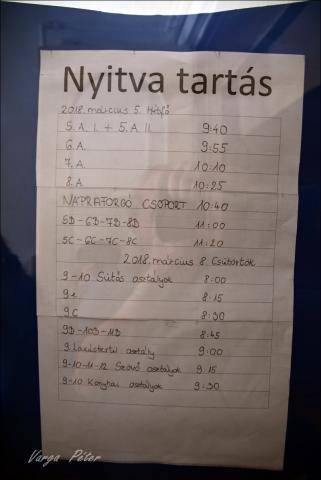 Nyitva tartás
2018. március 5. Hétfő
5. A. I. + 5. A. II. 9:40
6. A. 9:55
7. A. 10:10
8. A 10:25
NAPRAFORGÓ CSOPORT 10:40
5D-6D-7D-8D 11:00
5C-6C-7C-8C 11:20
2018. március 8. Csütörtök
9-10 Sütős osztályok 8:00
9. 8:15
9.C 8:30
9D-10D-11D 8:45
9. osztály 9:00
9-10-11-12 Szövő osztályok 9:15
9-10 Konyhai osztályok 9:30
Varga Péter